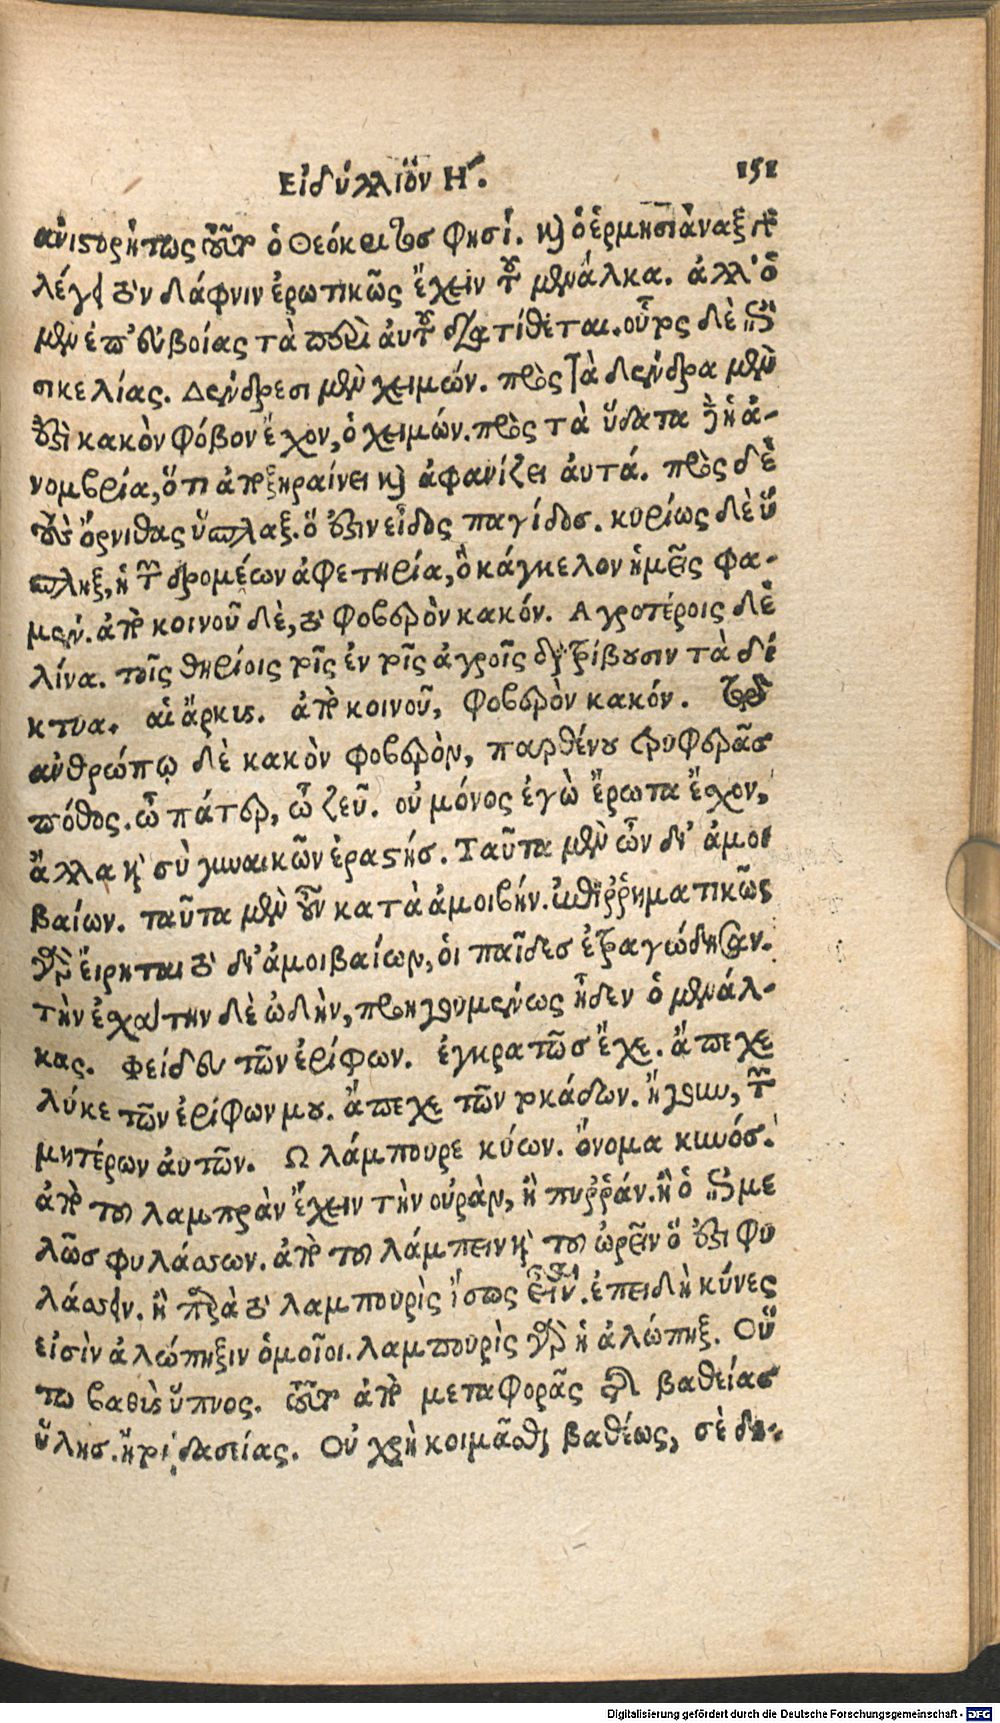 Εἰδύλλιον Η. 151
ἀνιστορήτως ὁ Θεόκριτος φησί. καὶ ὁ ἑρμησιάναξ
λέγει τὸν δάφνιν ἐρωτικῶς ἔχειν τοῦ μενάλκα. ἀλλ' ὁ
μὲν ἐπ' εὐβοίας τὰ περὶ αὐτοῦ διατίθεται. οὗτος δὲ ἐπὶ
σικελίας. Δένδρεσι μὲν χειμών. πρὸς τὰ δένδρα μὲν
ἐστὶ κακὸν φόβον ἔχον, ὁ χειμών. πρὸς τὰ ὕδατα ἡ ἀ-
νομβρία, ὅτι ἀποξηραίνει καὶ ἀφανίζει ἀυτά. πρὸς δὲ
τοὺς ὄρνιθας ὕσπλαξ. ὅ ἐστιν εἶδος παγίδος. κυρίως δὲ ὕ
σπληξ, ἡ τῶν δρομέων ἀφετηρία, ὃ κάγκελον ἡμεῖς φα-
μεν. ἀπὸ κοινοῦ δὲ, τὸ φοβερὸν κακόν. Αγροτέροις δὲ
λίνα. τοῖς θηρίοις τοῖς ἐν τοῖς ἀγροῖς διατρίβουσιν τὰ δί
κτυα. αἱ ἄρκυς. ἀπὸ κοινοῦ, φοβερὸν κακόν.
ἀνθρώπῳ δὲ κακὸν φοβερὸν, παρθένου τρυφερᾶς
πόθος. ὦ πάτερ, ὦ ζεῦ. οὐ μόνος ἐγὼ ἔρωτα ἔχον,
ἄλλα καὶ σὺ γυναικῶν ἐραστής. Ταῦτα μὲν ὦν δι' ἀμοι
βαίων. ταῦτα μὲν οὖν κατὰ ἀμοιβήν. ἐπιῤῥηματικῶς
γὰρ ἔιρηται τὸ δι' ἀμοιβαίων, ὁι παῖδες ἐτραγώδησαν.
τὴν ἐσχάτην δὲ ὠδὴν, προηγουμένως ἦδεν ὁ μενάλ-
κας. Φείδευ τῶν ἐρίφων. ἐγκρατῶς ἔχε. ἄπεχε
λύκε τῶν ἐρίφων μου. ἄπεχε τῶν τοκάδων. ἤγουν, τῶν
μητέρων ἀυτῶν. Ω λάμπουρε κύων. ὄνομα κυνός.
ἀπὸ του λαμπρὰν ἔχειν τὴν οὐρὰν, ἢ πυῤῥάν. ἢ ὁ ἐπιμε
λῶς φυλάσσων. ἀπὸ του λάμπειν καὶ του ὠρεῖν ὅ ἐστι φυ
λάσσειν. ἢ παρὰ τὸ λαμπουρὶς ἴσως ἐστίν. ἐπειδὴ κύνες
εἰσὶν ἀλώπηξιν ὁμοῖοι. λαμπουρὶς γὰρ ἡ ἀλώπηξ. Οὕ
τω βαθὺς ὕπνος. ἀπὸ μεταφορᾶς τῆς βαθείας
ὕλης. ἤτοι δασείας. Οὐ χρὴ κοιμᾶσθαι βαθέως, σὲ